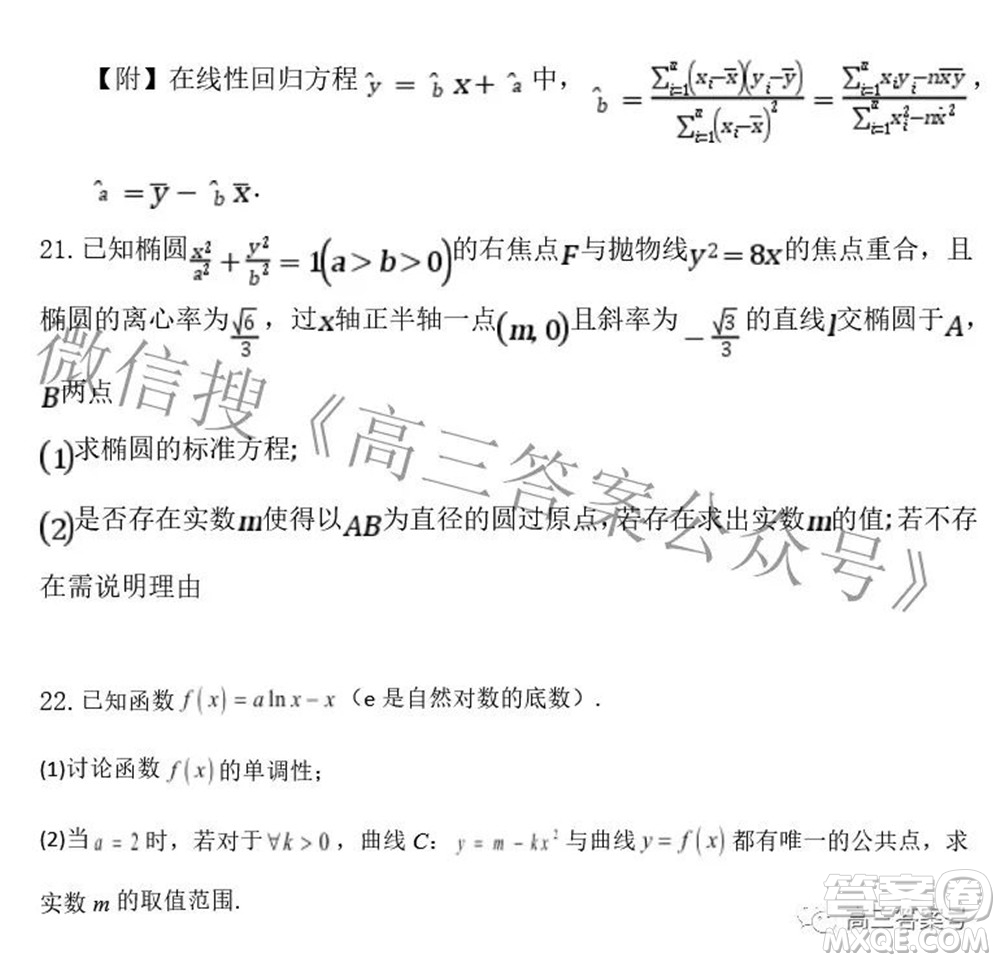 【附】在线性回归方程 ŷ = b̂ x+ â 中， b̂ = \frac{∑_{i=1}^{n}(x_i-x̄)(y_i-ȳ)}{∑_{i=1}^{n}(x_i-x̄)^2} = \frac{∑_{i=1}^{n}x_iy_i-nx̄ȳ}{∑_{i=1}^{n}x_i^2-nx̄^2}，
â = ȳ − b̂ x̄.
21. 已知椭圆 \frac{x^2}{a^2} + \frac{y^2}{b^2} = 1(a > b > 0)的右焦点F与抛物线y² = 8x的焦点重合，且
椭圆的离心率为\frac{√6}{3}，过x轴正半轴一点(m, 0)且斜率为 −\frac{√3}{3} 的直线l交椭圆于A，
B两点
(1)求椭圆的标准方程;
(2)是否存在实数m使得以AB为直径的圆过原点,若存在求出实数m的值;若不存
在需说明理由
22. 已知函数 f(x) = a ln x − x（e 是自然对数的底数）.
(1)讨论函数 f(x) 的单调性;
(2)当 a = 2 时，若对于 ∀k > 0，曲线 C： y = m − kx² 与曲线 y = f(x) 都有唯一的公共点，求
实数 m 的取值范围.
微信搜《高三答案公众号》
答案圈
高三答案号
MXQE.COM